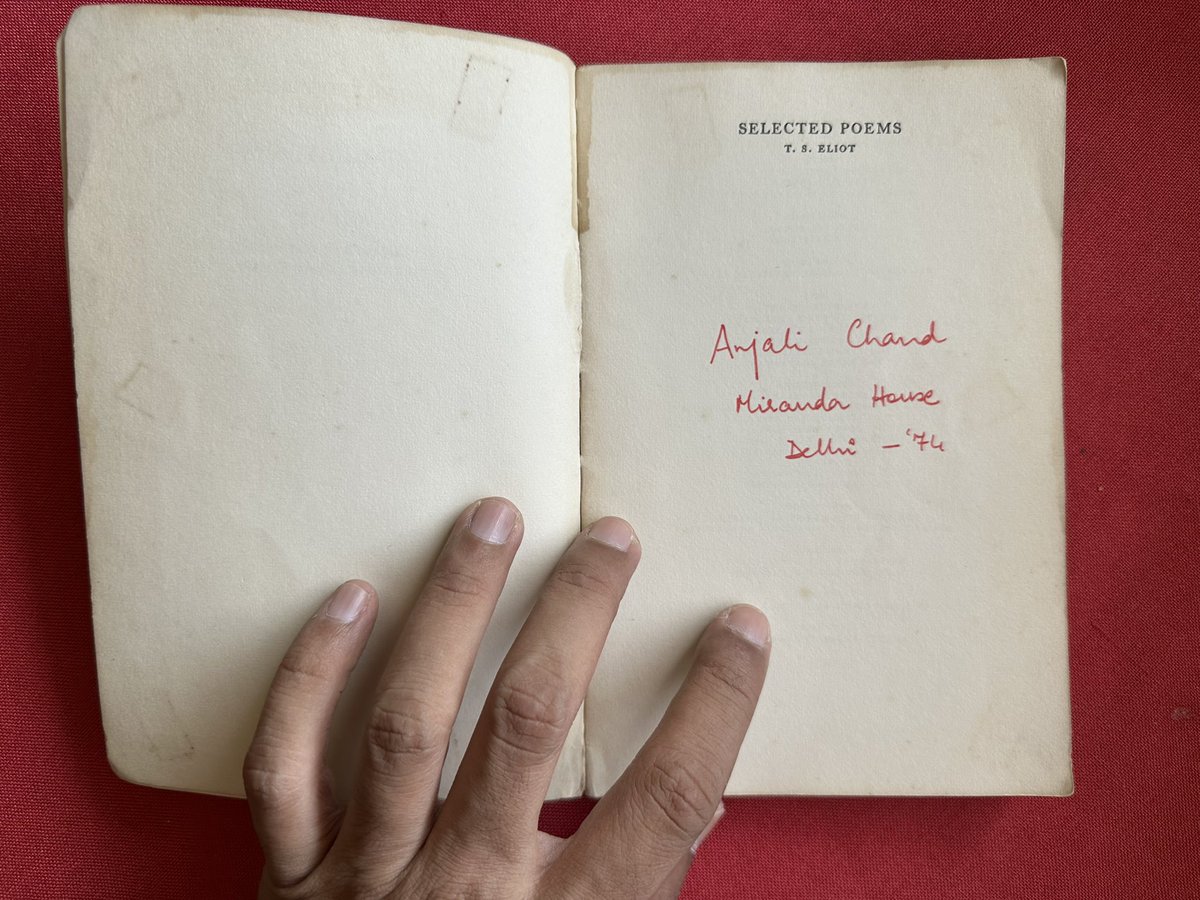 SELECTED POEMS
T. S. ELIOT
Anjali Chand
Miranda House
Delhi – '74